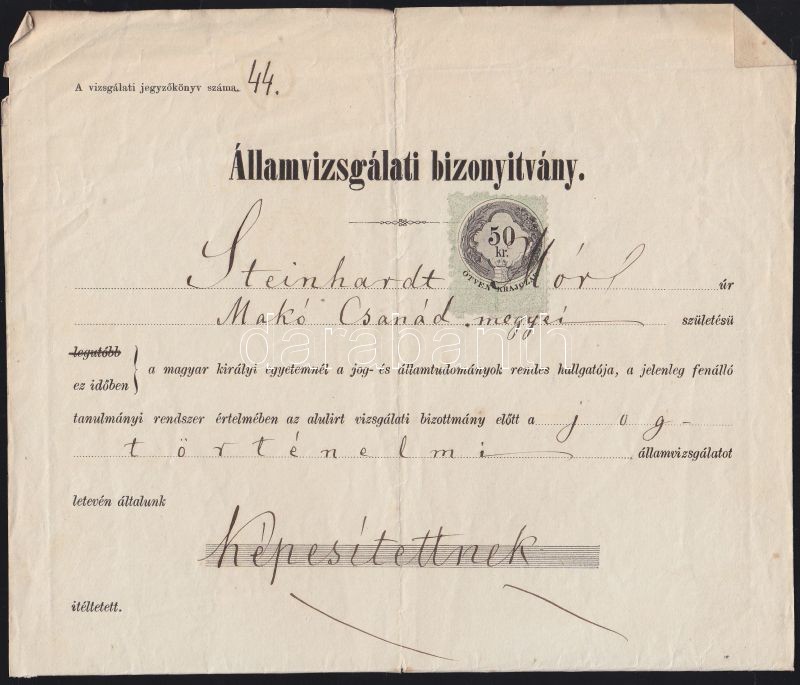 A vizsgálati jegyzőkönyv száma. 44.
Államvizsgálati bizonyitvány.
50
kr.
ÖTVEN KRAJCZÁR
Steinhardt Mór úr
Makó Csanád megyei születésü
legutóbb
ez időben
a magyar királyi egyetemnél a jog- és államtudományok rendes hallgatója, a jelenleg fenálló
tanulmányi rendszer értelmében az alulirt vizsgálati bizottmány előtt a jog-
történelmi államvizsgálatot
letevén általunk
Képesítettnek
itéltetett.
darabanth